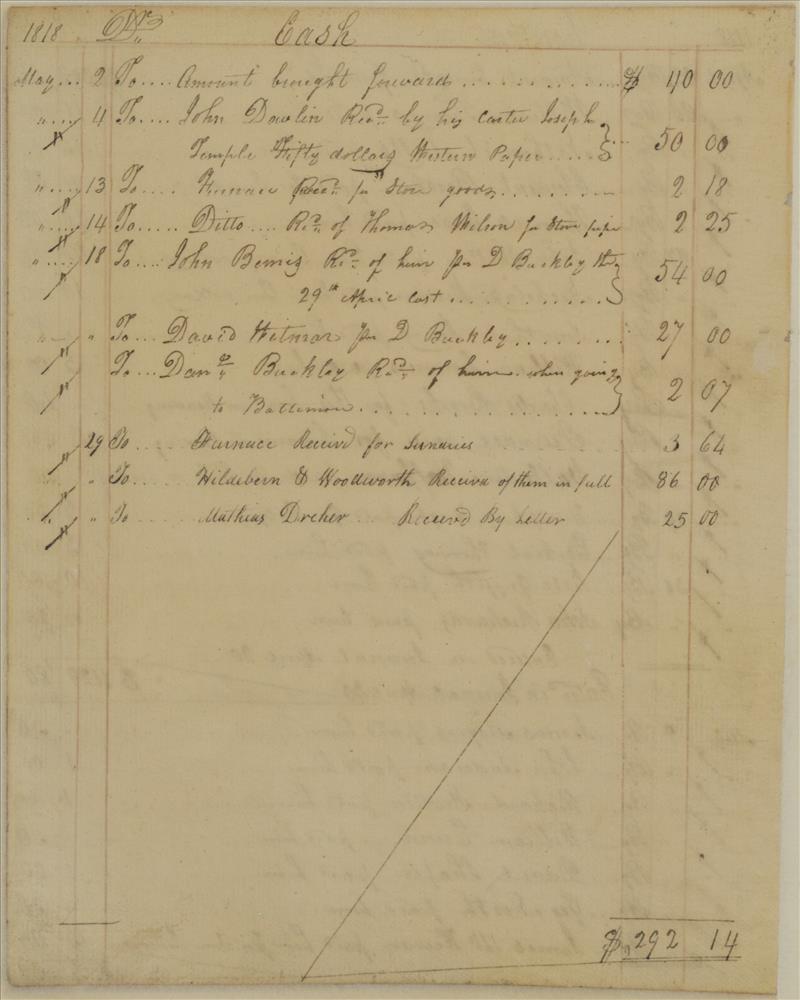 1818 Dr. Cash
May... 2 To.... Amount brought forward .......... $ 40 00
"..... 4 To..... John Dowlin Recd. by his carter Joseph
Temple Fifty dollars Western Paper..... 50 00
"..... 13 To.... Furnace Recd. for Store goods ........ 2 18
"..... 14 To..... Ditto.... Recd. of Thomas Wilson for Stove pipe 2 25
"..... 18 To.... John Bemis Recd. of him per D Buckley the
29th April last .......... 54 00
" " To... David Witmar per D Buckley ....... 27 00
To... Danl. Buckley Recd. of him when going
to Baltimore ................ 2 07
29 To .... Furnace Receivd for Sundries 3 64
" To..... Hildebern & Woodworth Receivd of them in full 86 00
" " To ..... Mathias Dreher ... Receivd By Letter 25 00
$ 292 14